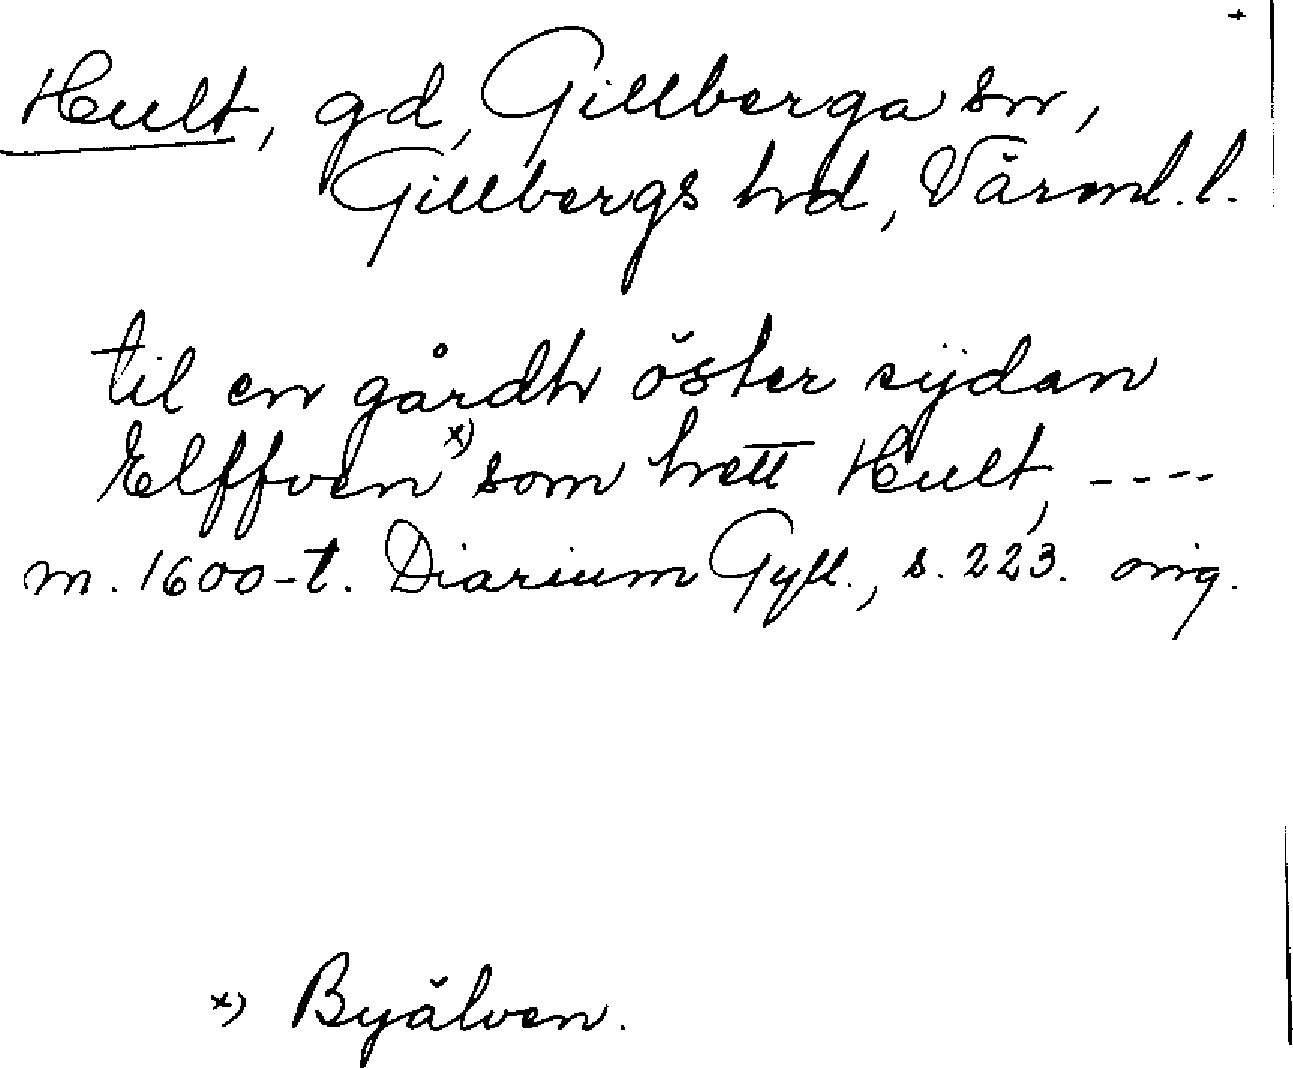 Hult, gd, Gillberga sn,
Gillbergs hd, Värml. l.
til en gårdh öster sijdan
Elffven x) som hett Hult, ----
m. 1600-t. Diarium Gyll., s. 223. orig.
x) Byälven.